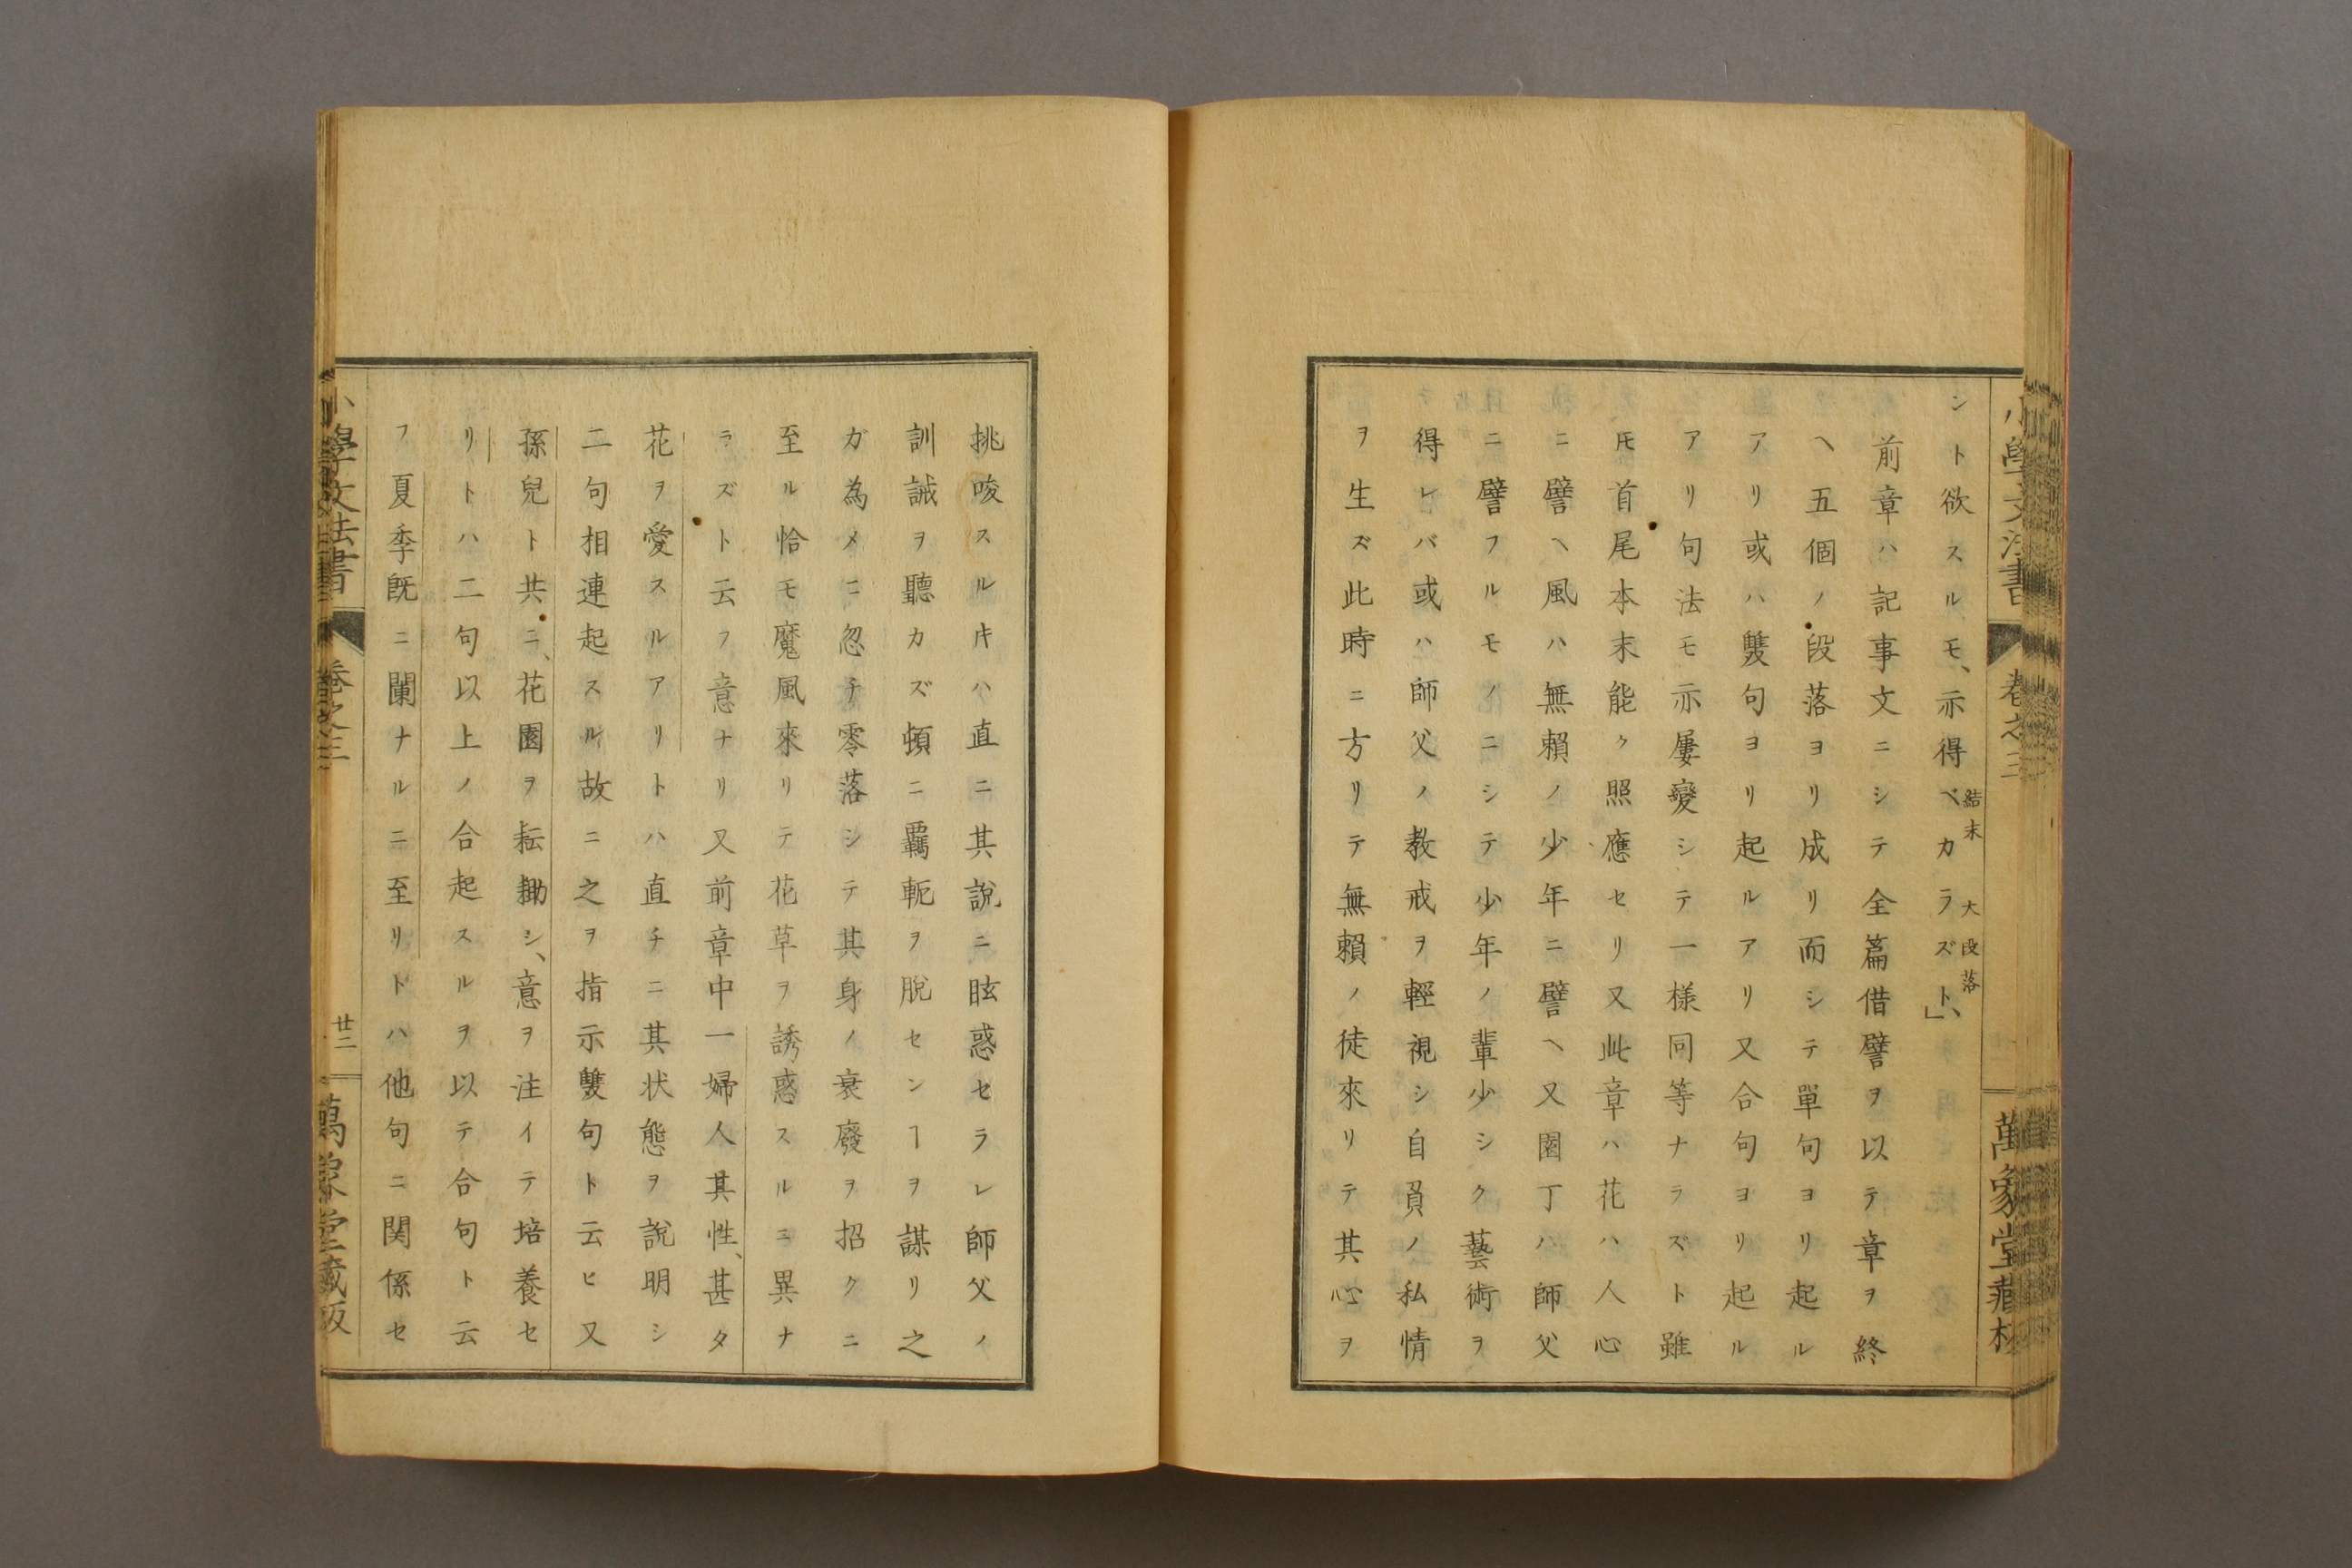 小學文法書 卷之三 萬象堂藏板
シト欲スルモ、亦得ベカラズト、」
結末 大段落
前章ハ記事文ニシテ全篇借譬ヲ以テ章ヲ終
ヘ五個ノ段落ヨリ成リ而シテ單句ヨリ起ル
アリ或ハ雙句ヨリ起ルアリ又合句ヨリ起ル
アリ句法モ亦屢變シテ一樣同等ナラズト雖
𪜈首尾本末能ク照應セリ又此章ハ花ハ人心
ニ譬ヘ風ハ無賴ノ少年ニ譬ヘ又園丁ハ師父
ニ譬フルモノニシテ少年ノ輩少シク藝術ヲ
得レバ或ハ師父ノ教戒ヲ輕視シ自負ノ私情
ヲ生ズ此時ニ方リテ無賴ノ徒來リテ其心ヲ
挑唆スル𪜈ハ直ニ其說ニ眩惑セラレ師父ノ
訓誡ヲ聽カズ頓ニ羈軛ヲ脫センヿヲ謀リ之
ガ為メニ忽チ零落シテ其身ノ衰廢ヲ招クニ
至ル恰モ魔風來リテ花草ヲ誘惑スルニ異ナ
ラズト云フ意ナリ又前章中一婦人其性、甚タ
花ヲ愛スルアリトハ直チニ其状態ヲ說明シ
二句相連起スル故ニ之ヲ指示雙句ト云ヒ又
孫兒ト共ニ、花園ヲ耘耡シ、意ヲ注イテ培養セ
リトハ二句以上ノ合起スルヲ以テ合句ト云
フ夏季既ニ闌ナルニ至リドハ他句ニ関係セ
小學文法書 卷之三 廿二 萬象堂藏板